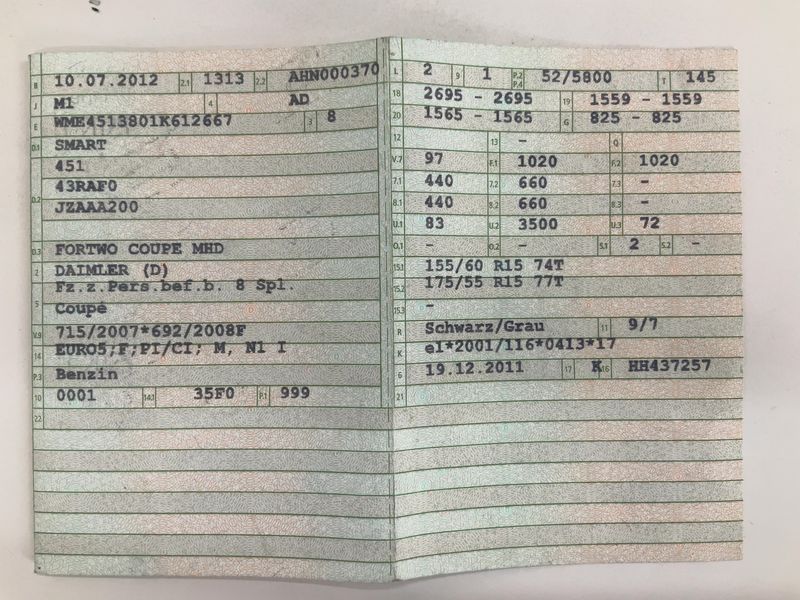 B 10.07.2012 2.1 1313 2.2 AHN000370
J M1 4 AD
E WME4513801K612667 3 8
D.1 SMART
451
43RAF0
D.2 JZAAA200
D.3 FORTWO COUPE MHD
2 DAIMLER (D)
Fz.z.Pers.bef.b. 8 Spl.
5 Coupé
V.9 715/2007*692/2008F
14 EURO5;F;PI/CI; M, N1 I
P.3 Benzin
10 0001 14.1 35F0 P.1 999
22
L 2 9 1 P.2 P.4 52/5800 T 145
18 2695 - 2695 19 1559 - 1559
20 1565 - 1565 G 825 - 825
12 13 - Q
V.7 97 F.1 1020 F.2 1020
7.1 440 7.2 660 7.3 -
8.1 440 8.2 660 8.3 -
U.1 83 U.2 3500 U.3 72
O.1 - O.2 - S.1 2 S.2 -
15.1 155/60 R15 74T
15.2 175/55 R15 77T
15.3 -
R Schwarz/Grau 11 9/7
K e1*2001/116*0413*17
6 19.12.2011 17 K 16 HH437257
21